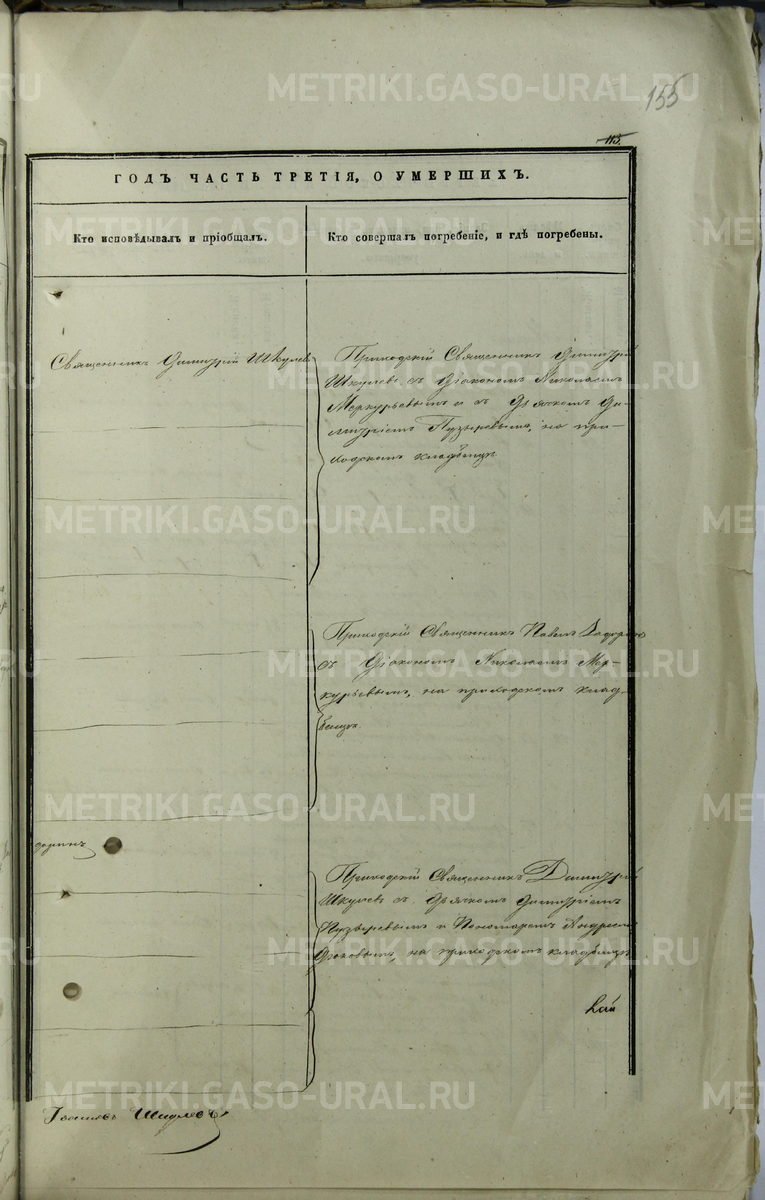 METRIKI.GASO-URAL.RU
155
113.
ГОДЪ ЧАСТЬ ТРЕТІЯ, О УМЕРШИХЪ.
Кто исповѣдывалъ и пріобщалъ.
Кто совершалъ погребеніе, и гдѣ погребены.
Священникъ Димитрій Шкулевъ
Приходскій Священникъ Димитрій
Шкулевъ съ Діакономъ Николаемъ
Меркурьевымъ и съ Дьячкомъ Ди-
митріемъ Пузыревымъ, на при-
ходскомъ кладбищѣ
Приходскій Священникъ Павелъ
съ Діакономъ Николаемъ Мер-
курьевымъ, на приходскомъ клад-
бищѣ.
доринъ
Приходскій Священникъ Димитрій
Шкулевъ съ Дьячкомъ Димитріемъ
Пузыревымъ и Пономаремъ Андреемъ
на приходскомъ кладбищѣ